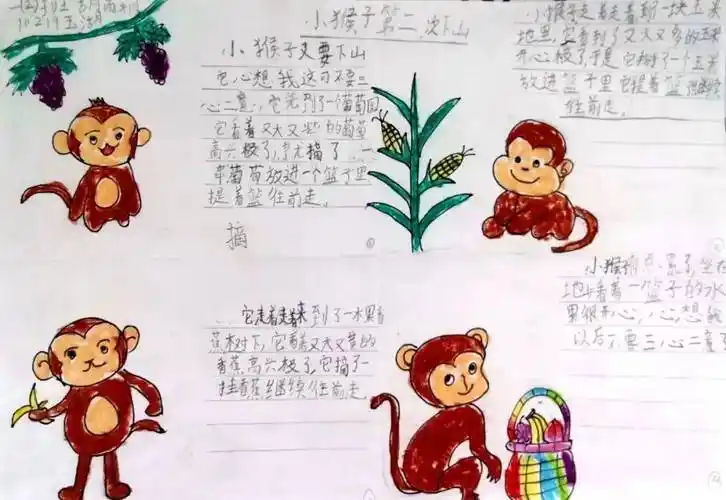 小猴子第二次下山
小猴子又要下山
它心想我这可不要三
心二意，它先到了一个葡萄园
它看着又大又紫的葡萄
高兴极了，才摘了一
串葡萄放进一个篮子里
提着篮往前走。
摘
小猴子走着走着到一块玉米
地里，它看到了又大又多的玉米
开心极了，于是它掰了一个玉米
放进篮子里它提着篮
往前走。
它走着走着来到了一木果香
蕉树下，它看着又大又黄的
香蕉高兴极了，它摘了一
挂香蕉继续往前走。
小猴有点累了，坐在
地上看着一篮子的水
果很开心，心想
以后不要三心二意